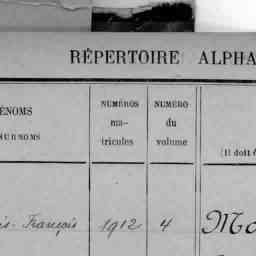 RÉPERTOIRE ALPHA
ÉNOMS
SURNOMS
NUMÉROS
ma-
tricules
NUMÉRO
du
volume
(Il doit
is-François 1912 4 Mo